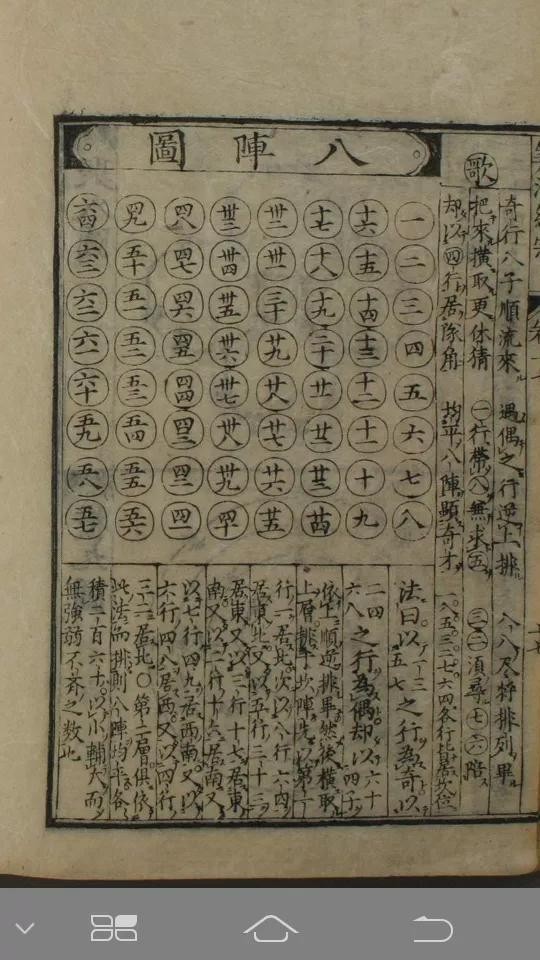 歌
奇行八子順流來 遇偶之行逆上排 八八尽将排列畢
把來橫取更休猜 一行帶八無求五 三二須尋七六陪
却以四行居隊角 均平八陣顯奇才 一八五三二七六四各行皆居坎位
八陣圖
一 二 三 四 五 六 七 八
十六 十五 十四 十三 十二 十一 十 九
十七 十八 十九 二十 廿一 廿二 廿三 廿四
卅二 卅一 三十 廿九 廿八 廿七 廿六 廿五
卅三 卅四 卅五 卅六 卅七 卅八 卅九 四十
四八 四七 四六 四五 四四 四三 四二 四一
四九 五十 五一 五二 五三 五四 五五 五六
六四 六三 六二 六一 六十 五九 五八 五七
法曰以一三五七之行為奇以
二四六八之行為偶却以六十四子
依上順逆排畢然後橫取
上層排于坎陣先以第一
行一居北次以八行六四
居東北又以五行三十三
居東又以三行十七居東
南又以二行十六居南又
以七行四九居西南又以
六行四八居西又以四行
三二居北〇第二層俱依
此法而排則八陣均平各
積二百六十以小輔大而
無強弱不齊之数也